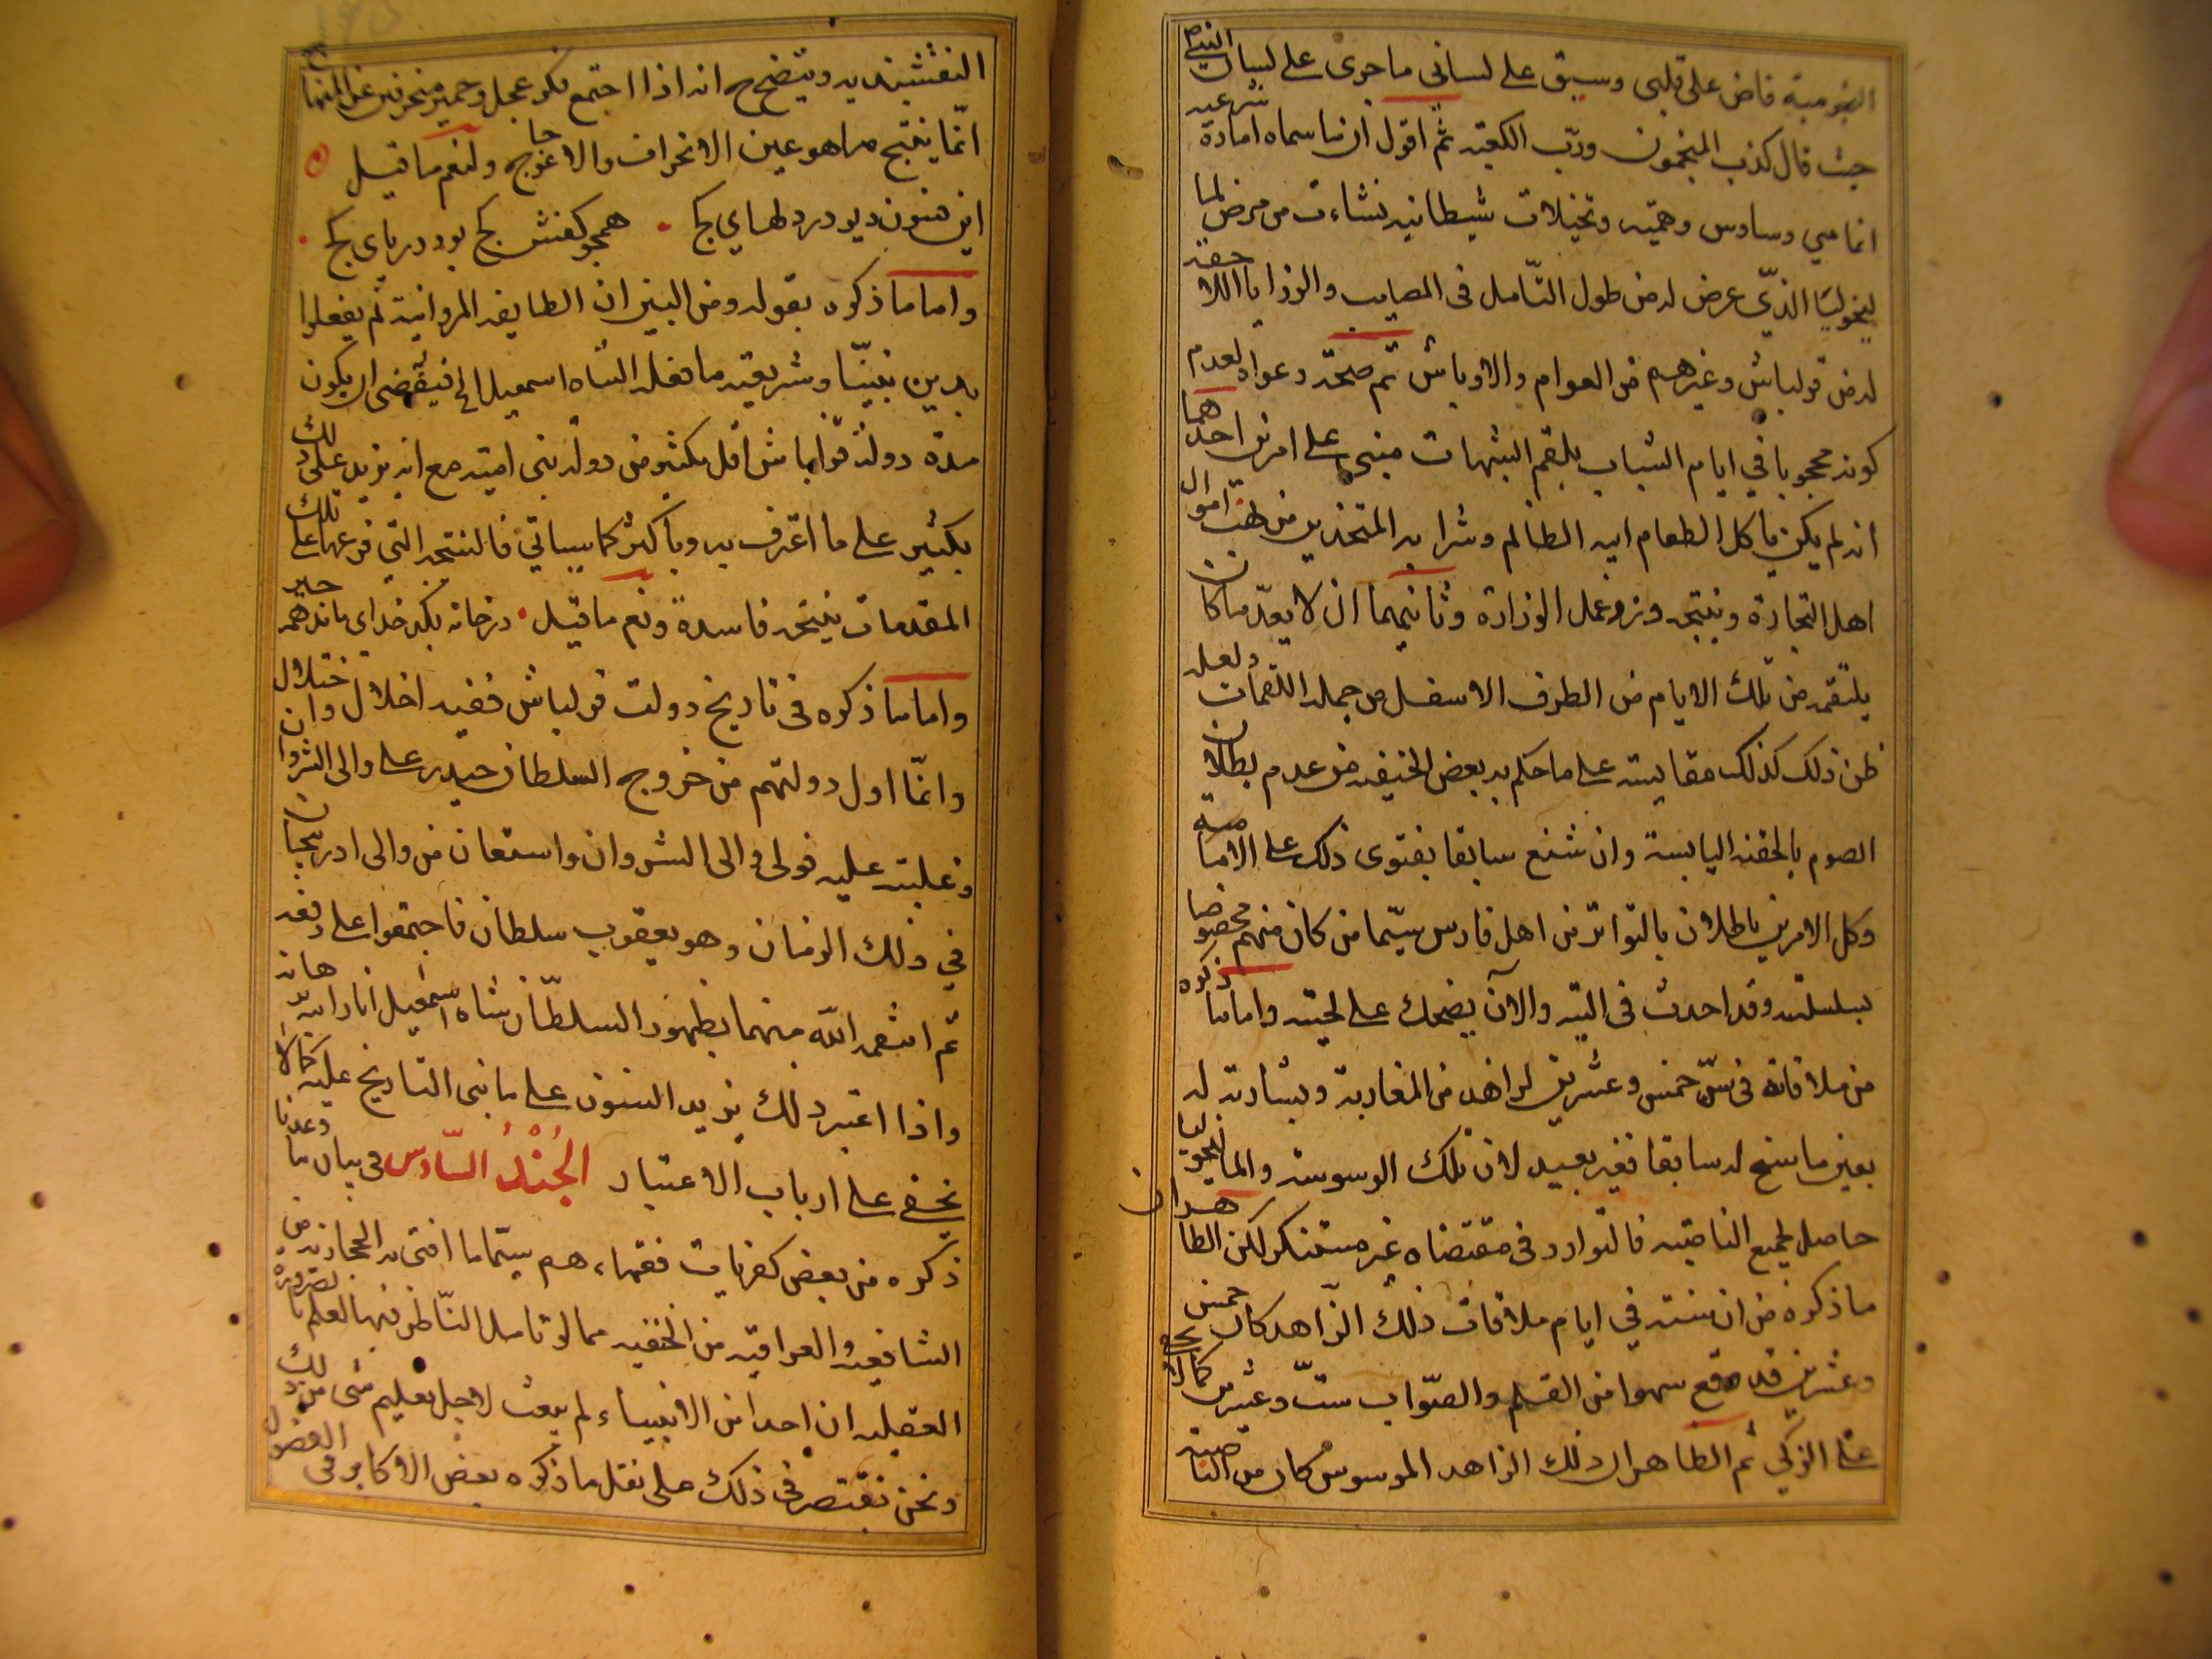 النجومية فاض على قلبي وسبق على لساني ما جرى على لسان النبي ص
حيث قال كذب المنجمون ورب الكعبة ثم اقول ان ما سماه امارة شرعية
انما هي وساوس وهمية وتخيلات شيطانية نشاءت من مرض لما
ليخوليا الذي عرض له من طول التأمل في المصايب والرزايا اللا حقة
له من قزلباش وغيرهم من العوام والاوباش ثم صحة دعواه لعدم
كونه محجوبا في ايام الشباب بلقم الشبهات مبني على امرين احدهما
انه لم يكن ياكل الطعام ابيه الظالم وشرابه المتخذين من اموال
اهل التجارة وعمل الوزارة وثانيهما ان لا يعد ما كان
يلتقمه من تلك الايام من الطرف الاسفل من جملة اللقمات ولعله
ظن ذلك كذلك مقايسة على ما حكم به بعض الحنيفة من عدم بطلان
الصوم بالحقنة اليابسة وان شنع سابقا بفتوى ذلك على الامامية
وكل الامرين باطلان بالتواتر من اهل فارس سيما من كان منهم مخصوصا
بسلسلته وقد احدث في النية والان يضحك على لحيته واما ما ذكره
من ملاقاته في سن خمس وعشرين لزاهد من المغاربة وبشارته له
بعين ما سنح له سابقا فغير بعيد لان تلك الوسوسة والماليخوليا
حاصل لجميع الناصبة فالتوارد في مقتضاه غير مستنكر لكن الظاهر ان
ما ذكره من ان سنه في ايام ملاقات ذلك الزاهد كان خمس
وعشرين قد وقع سهوا من القلم والصواب ست وعشرين كما لا يخفى
على الزكي ثم الظاهر ان ذلك الزاهد الموسوس كان من الناصبة
النقشبنديه ويتضح ح انه اذا اجتمع فكر عجل وحمير منحرفين عن المنهاج
انما ينتج ما هو عين الانحراف والاعوجاج ولنعم ما قيل
اين فسون ديو در دلهاي كج • همچو كفش كج بود در پاى كج
واما ما ذكره بقوله ومن البين ان الطايفة المروانية لم يفعلوا
بدين نبينا وشريعته ما فعله الشاه اسمعيل الخ فيقتضى ان يكون
مدة دولة قزلباش اقل بكثير من دولة بني امية مع انه يزيد على ذلك
بكثير على ما اعترف به وباكثر كما سياتي فالنتيجة التي فرعها على تلك
المقدمات نتيجة فاسدة ونعم ما قيل • در خانه بكد خداى ماند همه چيز
واما ما ذكره في تاريخ دولت قزلباش ففيه اخلال واختلال
وانما اول دولتهم من خروج السلطان حيدر على والى الشروان
وغلبته عليه فولى والى الشروان واستعان من والى ادربيجان
في ذلك الزمان وهو يعقوب سلطان فاجتمعوا على دفعه
ثم انتقم الله منهما بظهور السلطان شاه اسمعيل انار الله برهانه
واذا اعتبر ذلك يزيد السنون على ما بنى التاريخ عليه كما لا
يخفى على ارباب الاعتبار الجُنْدُ السّادس في بيان ما وعدنا
ذكره من بعض كفريات فقهاءهم سيما ما افتى به الحجازيه من
الشافعيه والعراقيه من الحنفيه مما لو تامل الناظر فيها لعلم بالضرورة
العقليه ان احدا من الانبياء لم يبعث لاجل تعليم شى من ذلك
ونحن نقتصر في ذلك على نقل ما ذكره بعض الاكابر في الفصول